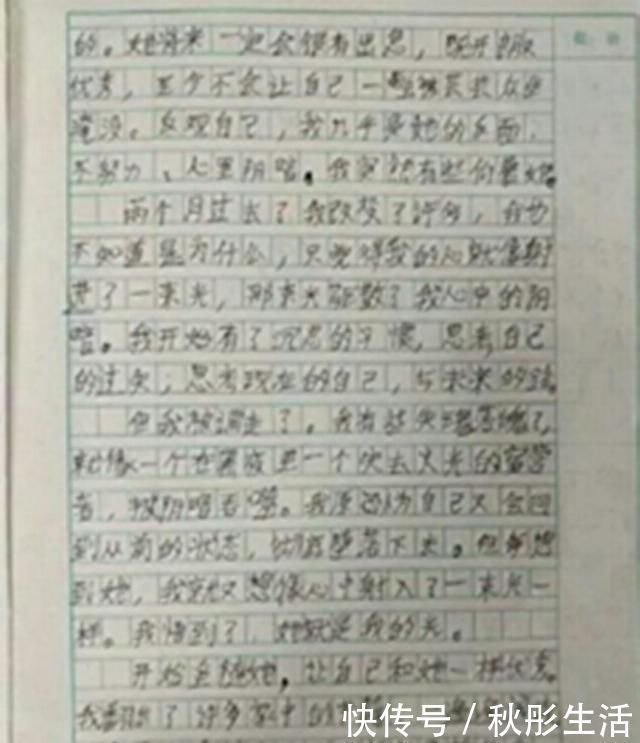 的。她将来一定会很有出息，既开朗
优秀，至少不会让自己一直被芸芸众生
淹没。反观自己，我几乎是她的反面，
不努力、心里阴暗。我突然有些仰慕她。
两个月过去了我改变了许多，我也
不知道是为什么，只觉得我的心就像射
进了一束光，那束光驱散了我心中的阴
暗。我开始有了沉思的习惯，思考自己
的过失；思考现在的自己，与未来的路。
但我被调走了。我有些失魂落魄了，
就像一个在黑夜里一个失去火光的宿营
者，被阴暗吞噬。我原以为自己又会回
到从前的状态，彻底堕落下去。但每想
到她，我就又想像心中射入了一束光一
样。我悟到了，她就是我的光。
开始追随她，让自己和她一样优秀。
我翻阅了许多家中的
快传号／秋彤生活